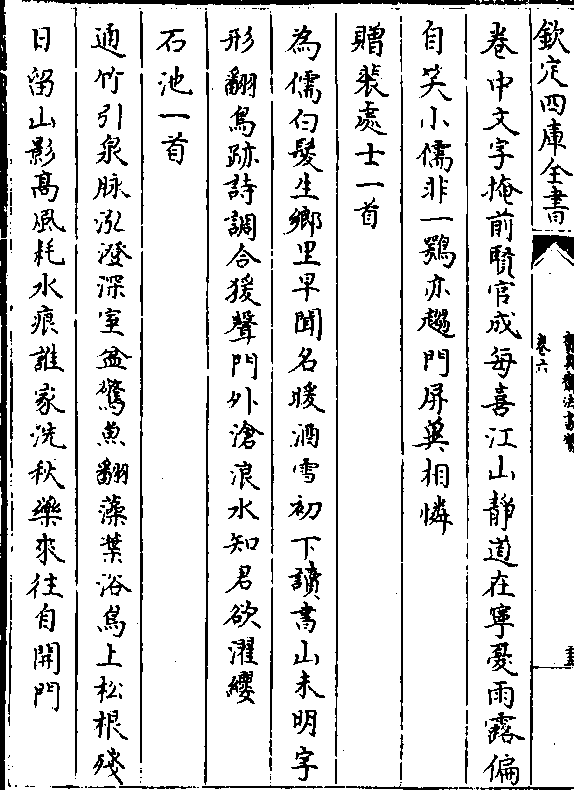 欽定四庫全書
卷六
卷中文字掩前賢官成每喜江山靜道在寧憂雨露偏
自笑小儒非一鶚亦趨門屏冀相憐
贈裴處士一首
為儒白髮生鄉里早聞名暖酒雪初下讀書山未明字
形翻鳥跡詩調合猿聲門外滄浪水知君欲濯纓
石池一首
通竹引泉脉泓澄深室盆驚魚翻藻葉浴鳥上松根殘
日留山影髙風耗水痕誰家洗秋藥來往自開門